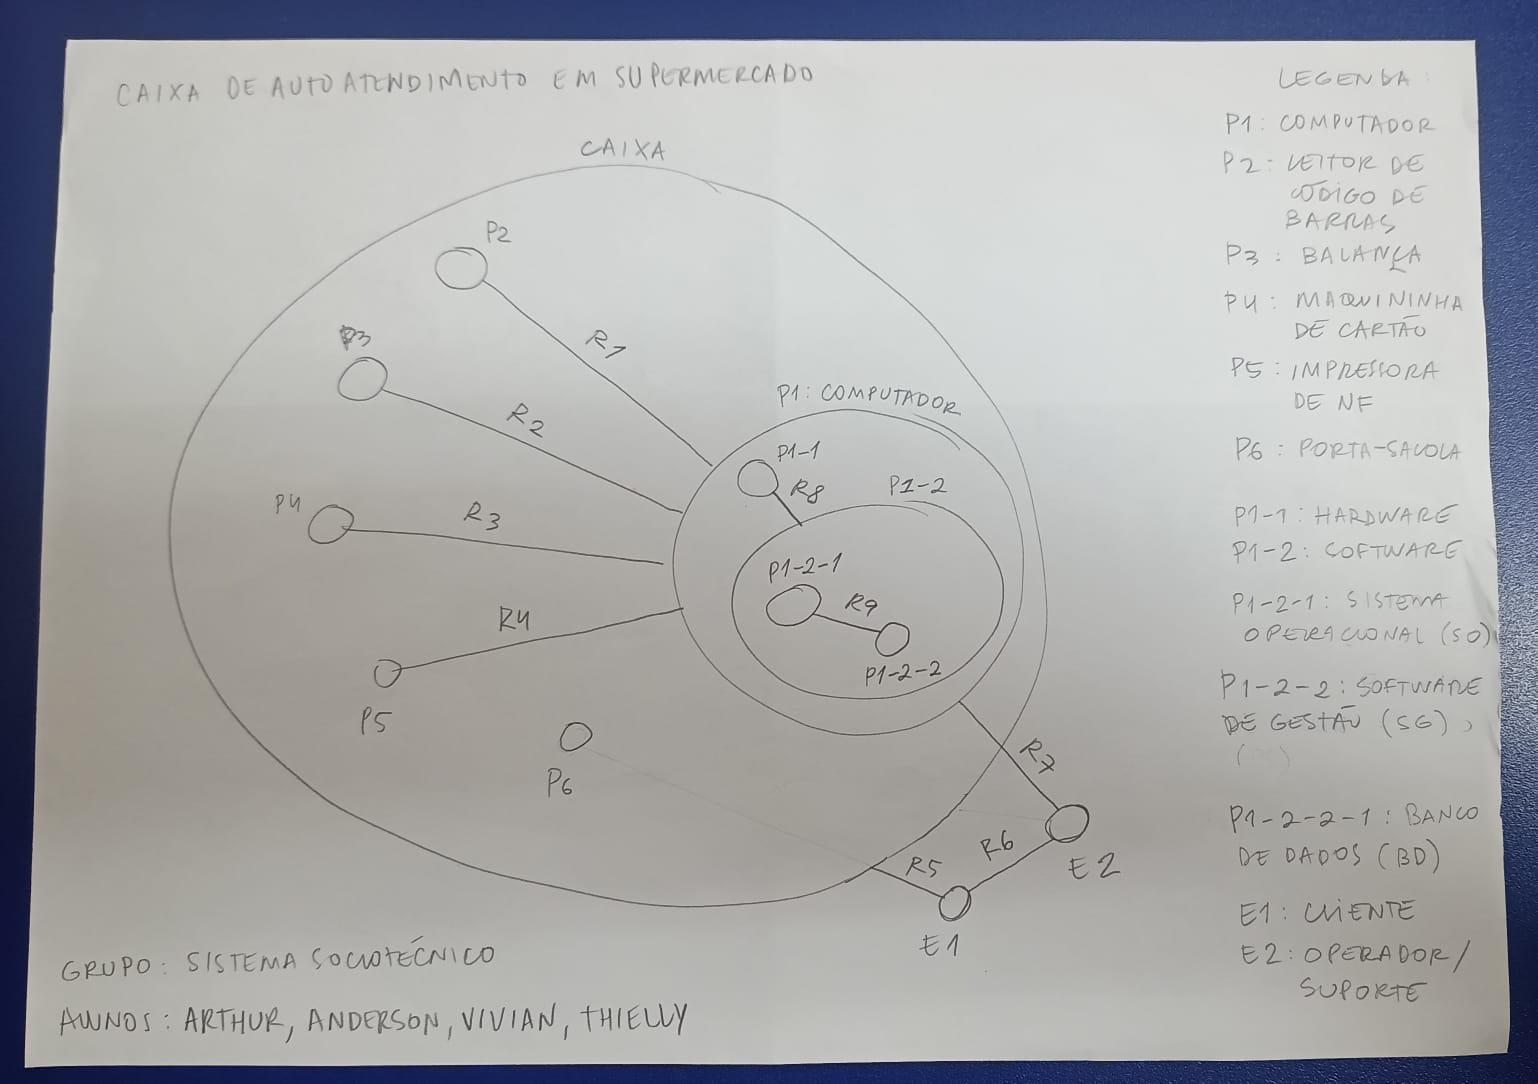 CAIXA DE AUTOATENDIMENTO EM SUPERMERCADO
CAIXA
P2
R1
P3
R2
P4
R3
R4
P5
P6
P1: COMPUTADOR
P1-1
R8
P1-2
P1-2-1
R9
P1-2-2
R7
R6
R5
E2
E1
LEGENDA:
P1: COMPUTADOR
P2: LEITOR DE
CÓDIGO DE
BARRAS
P3: BALANÇA
P4: MAQUININHA
DE CARTÃO
P5: IMPRESSORA
DE NF
P6: PORTA-SACOLA
P1-1: HARDWARE
P1-2: SOFTWARE
P1-2-1: SISTEMA
OPERACIONAL (SO)
P1-2-2: SOFTWARE
DE GESTÃO (SG),
P1-2-2-1: BANCO
DE DADOS (BD)
E1: CLIENTE
E2: OPERADOR/
SUPORTE
GRUPO: SISTEMA SOCIOTÉCNICO
ALUNOS: ARTHUR, ANDERSON, VIVIAN, THIELLY